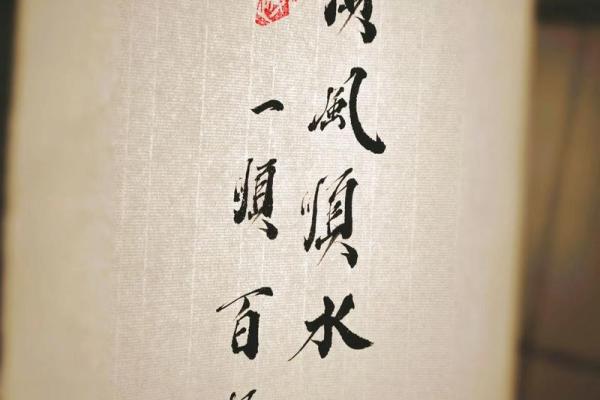 風順水
一順百